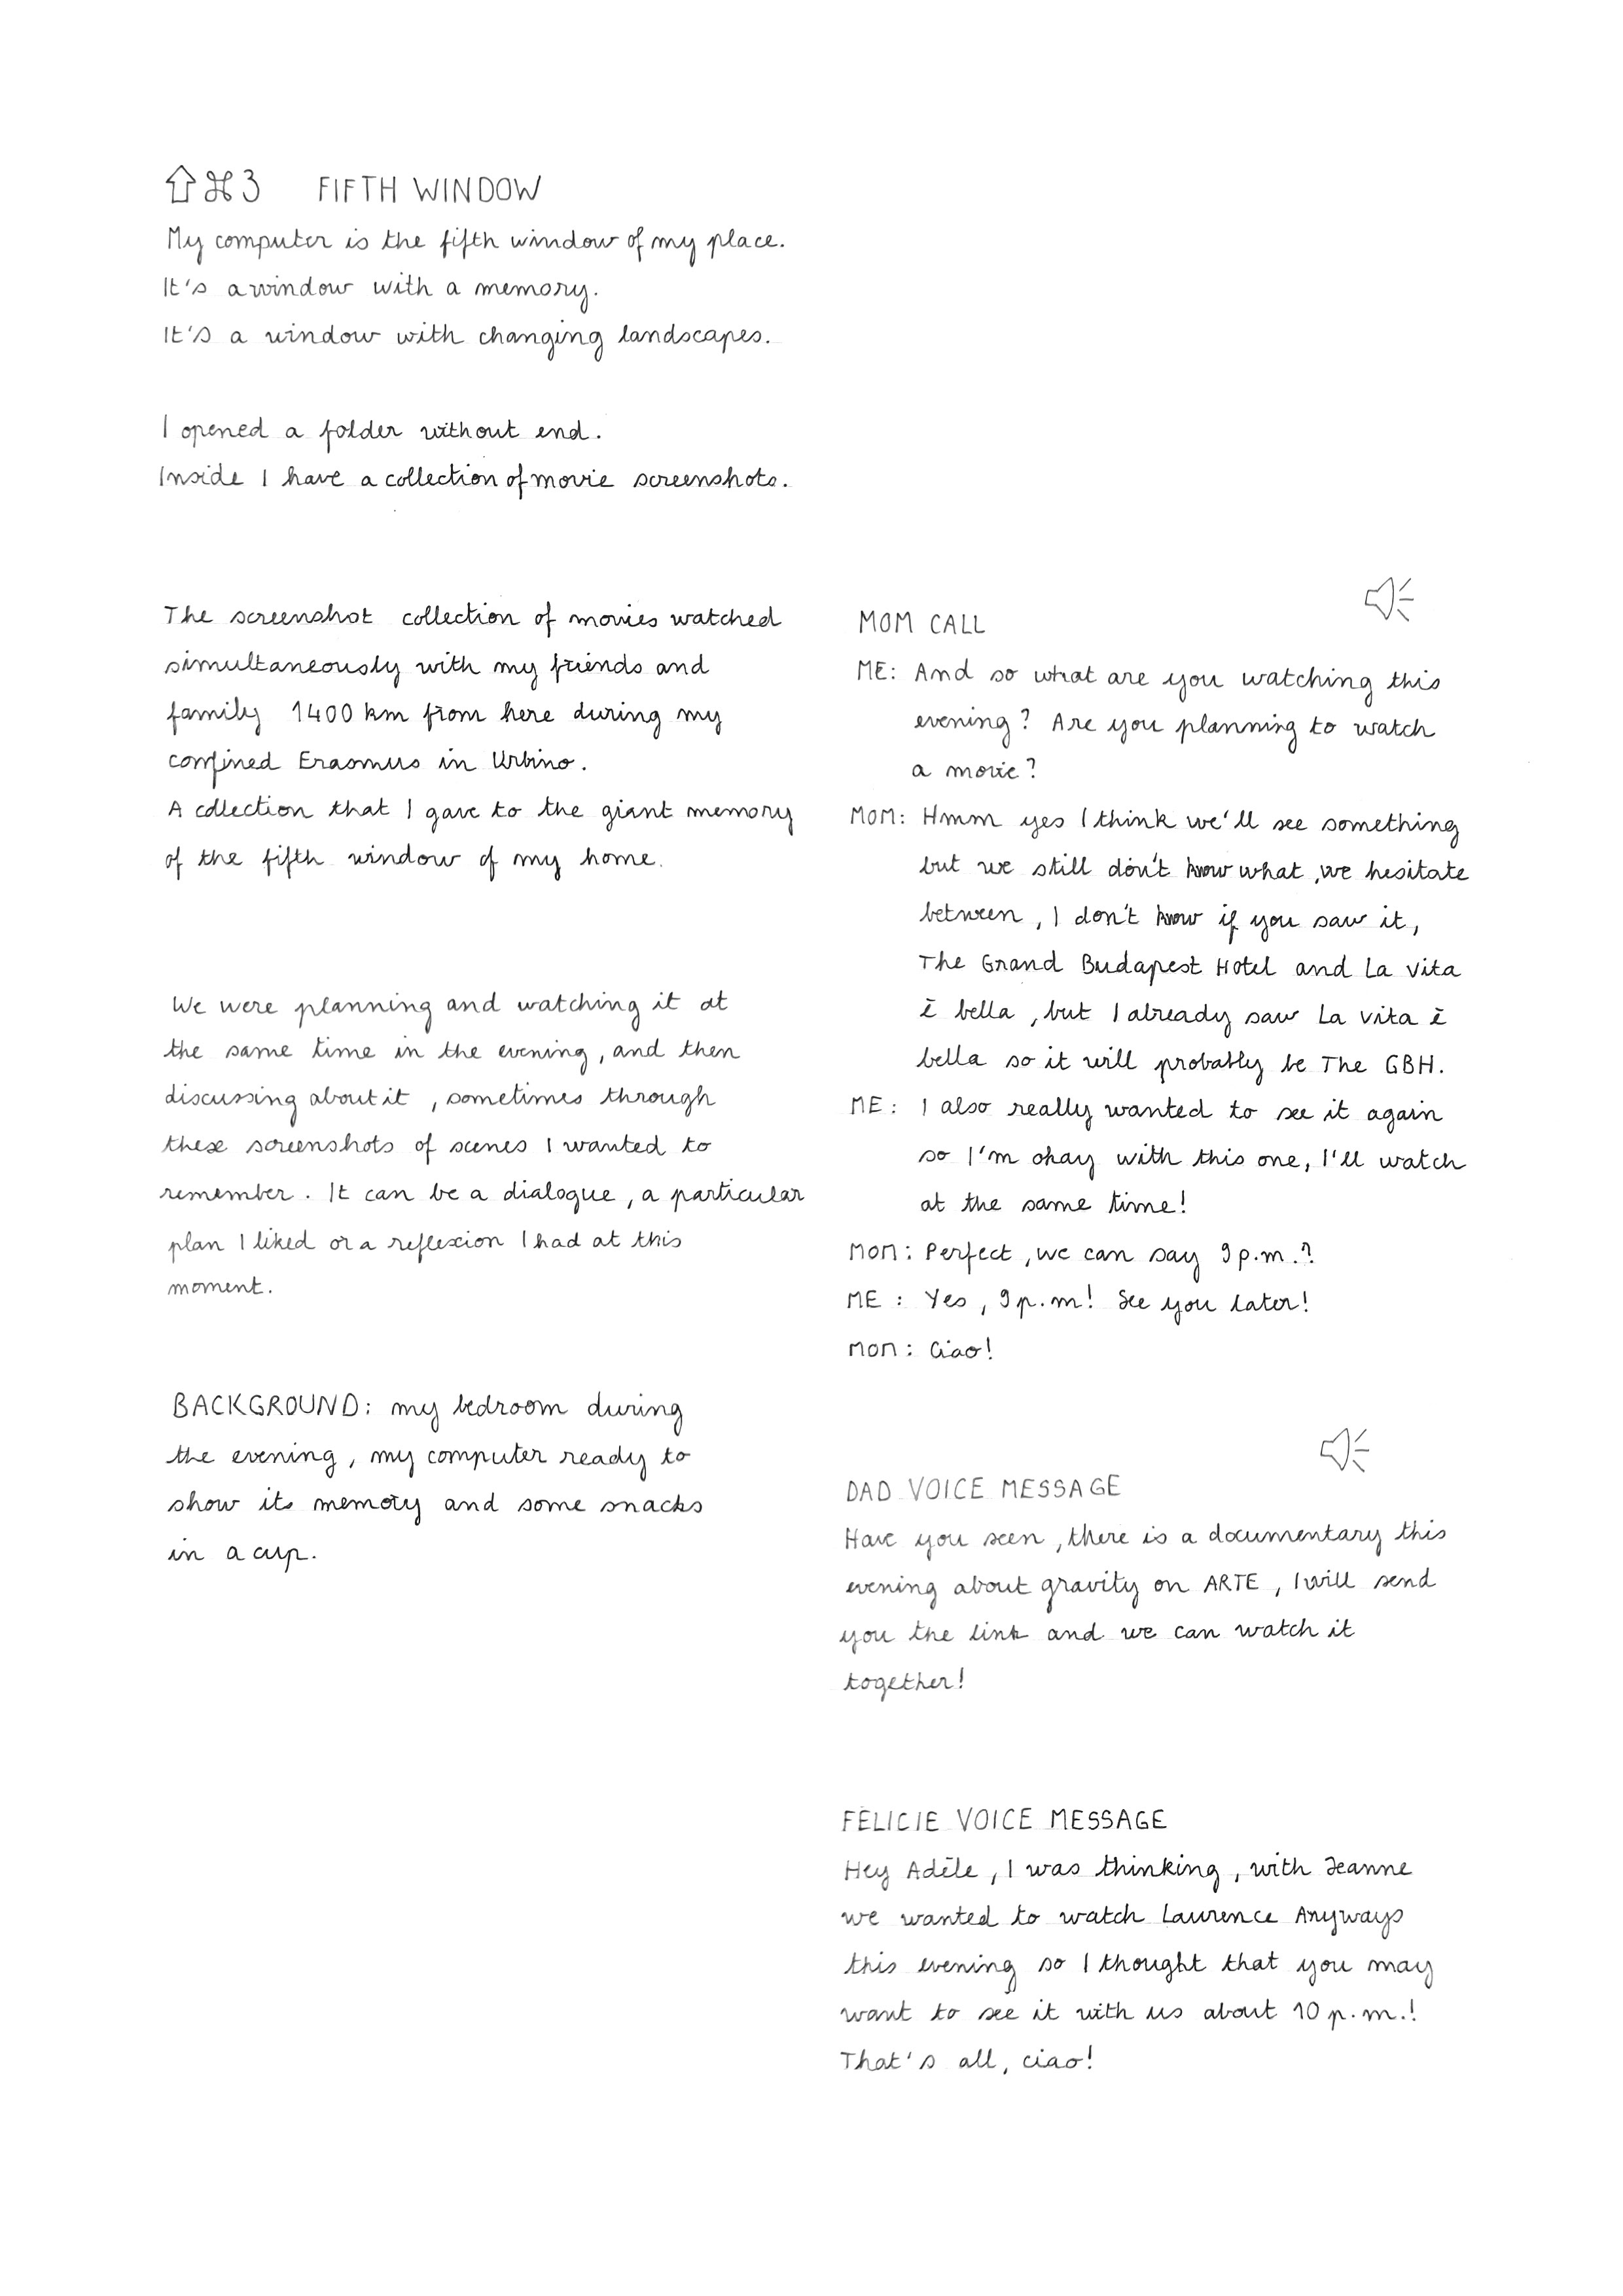 ⇧⌘3 FIFTH WINDOW
My computer is the fifth window of my place.
It's a window with a memory.
It's a window with changing landscapes.
I opened a folder without end.
Inside I have a collection of movie screenshots.
The screenshot collection of movies watched
simultaneously with my friends and
family 1400 km from here during my
confined Erasmus in Urbino.
A collection that I gave to the giant memory
of the fifth window of my home.
We were planning and watching it at
the same time in the evening, and then
discussing about it, sometimes through
these screenshots of scenes I wanted to
remember. It can be a dialogue, a particular
plan I liked or a reflexion I had at this
moment.
BACKGROUND: my bedroom during
the evening, my computer ready to
show its memory and some snacks
in a cup.
MOM CALL
ME: And so what are you watching this
evening? Are you planning to watch
a movie?
MOM: Hmm yes I think we'll see something
but we still don't know what, we hesitate
between, I don't know if you saw it,
The Grand Budapest Hotel and La vita
è bella, but I already saw La vita è
bella so it will probably be The GBH.
ME: I also really wanted to see it again
so I'm okay with this one, I'll watch
at the same time!
MOM: Perfect, we can say 9 p.m.?
ME: Yes, 9 p.m! See you later!
MOM: Ciao!
DAD VOICE MESSAGE
Have you seen, there is a documentary this
evening about gravity on ARTE, I will send
you the link and we can watch it
together!
FÉLICIE VOICE MESSAGE
Hey Adèle, I was thinking, with Jeanne
we wanted to watch Laurence Anyways
this evening so I thought that you may
want to see it with us about 10 p.m.!
That's all, ciao!